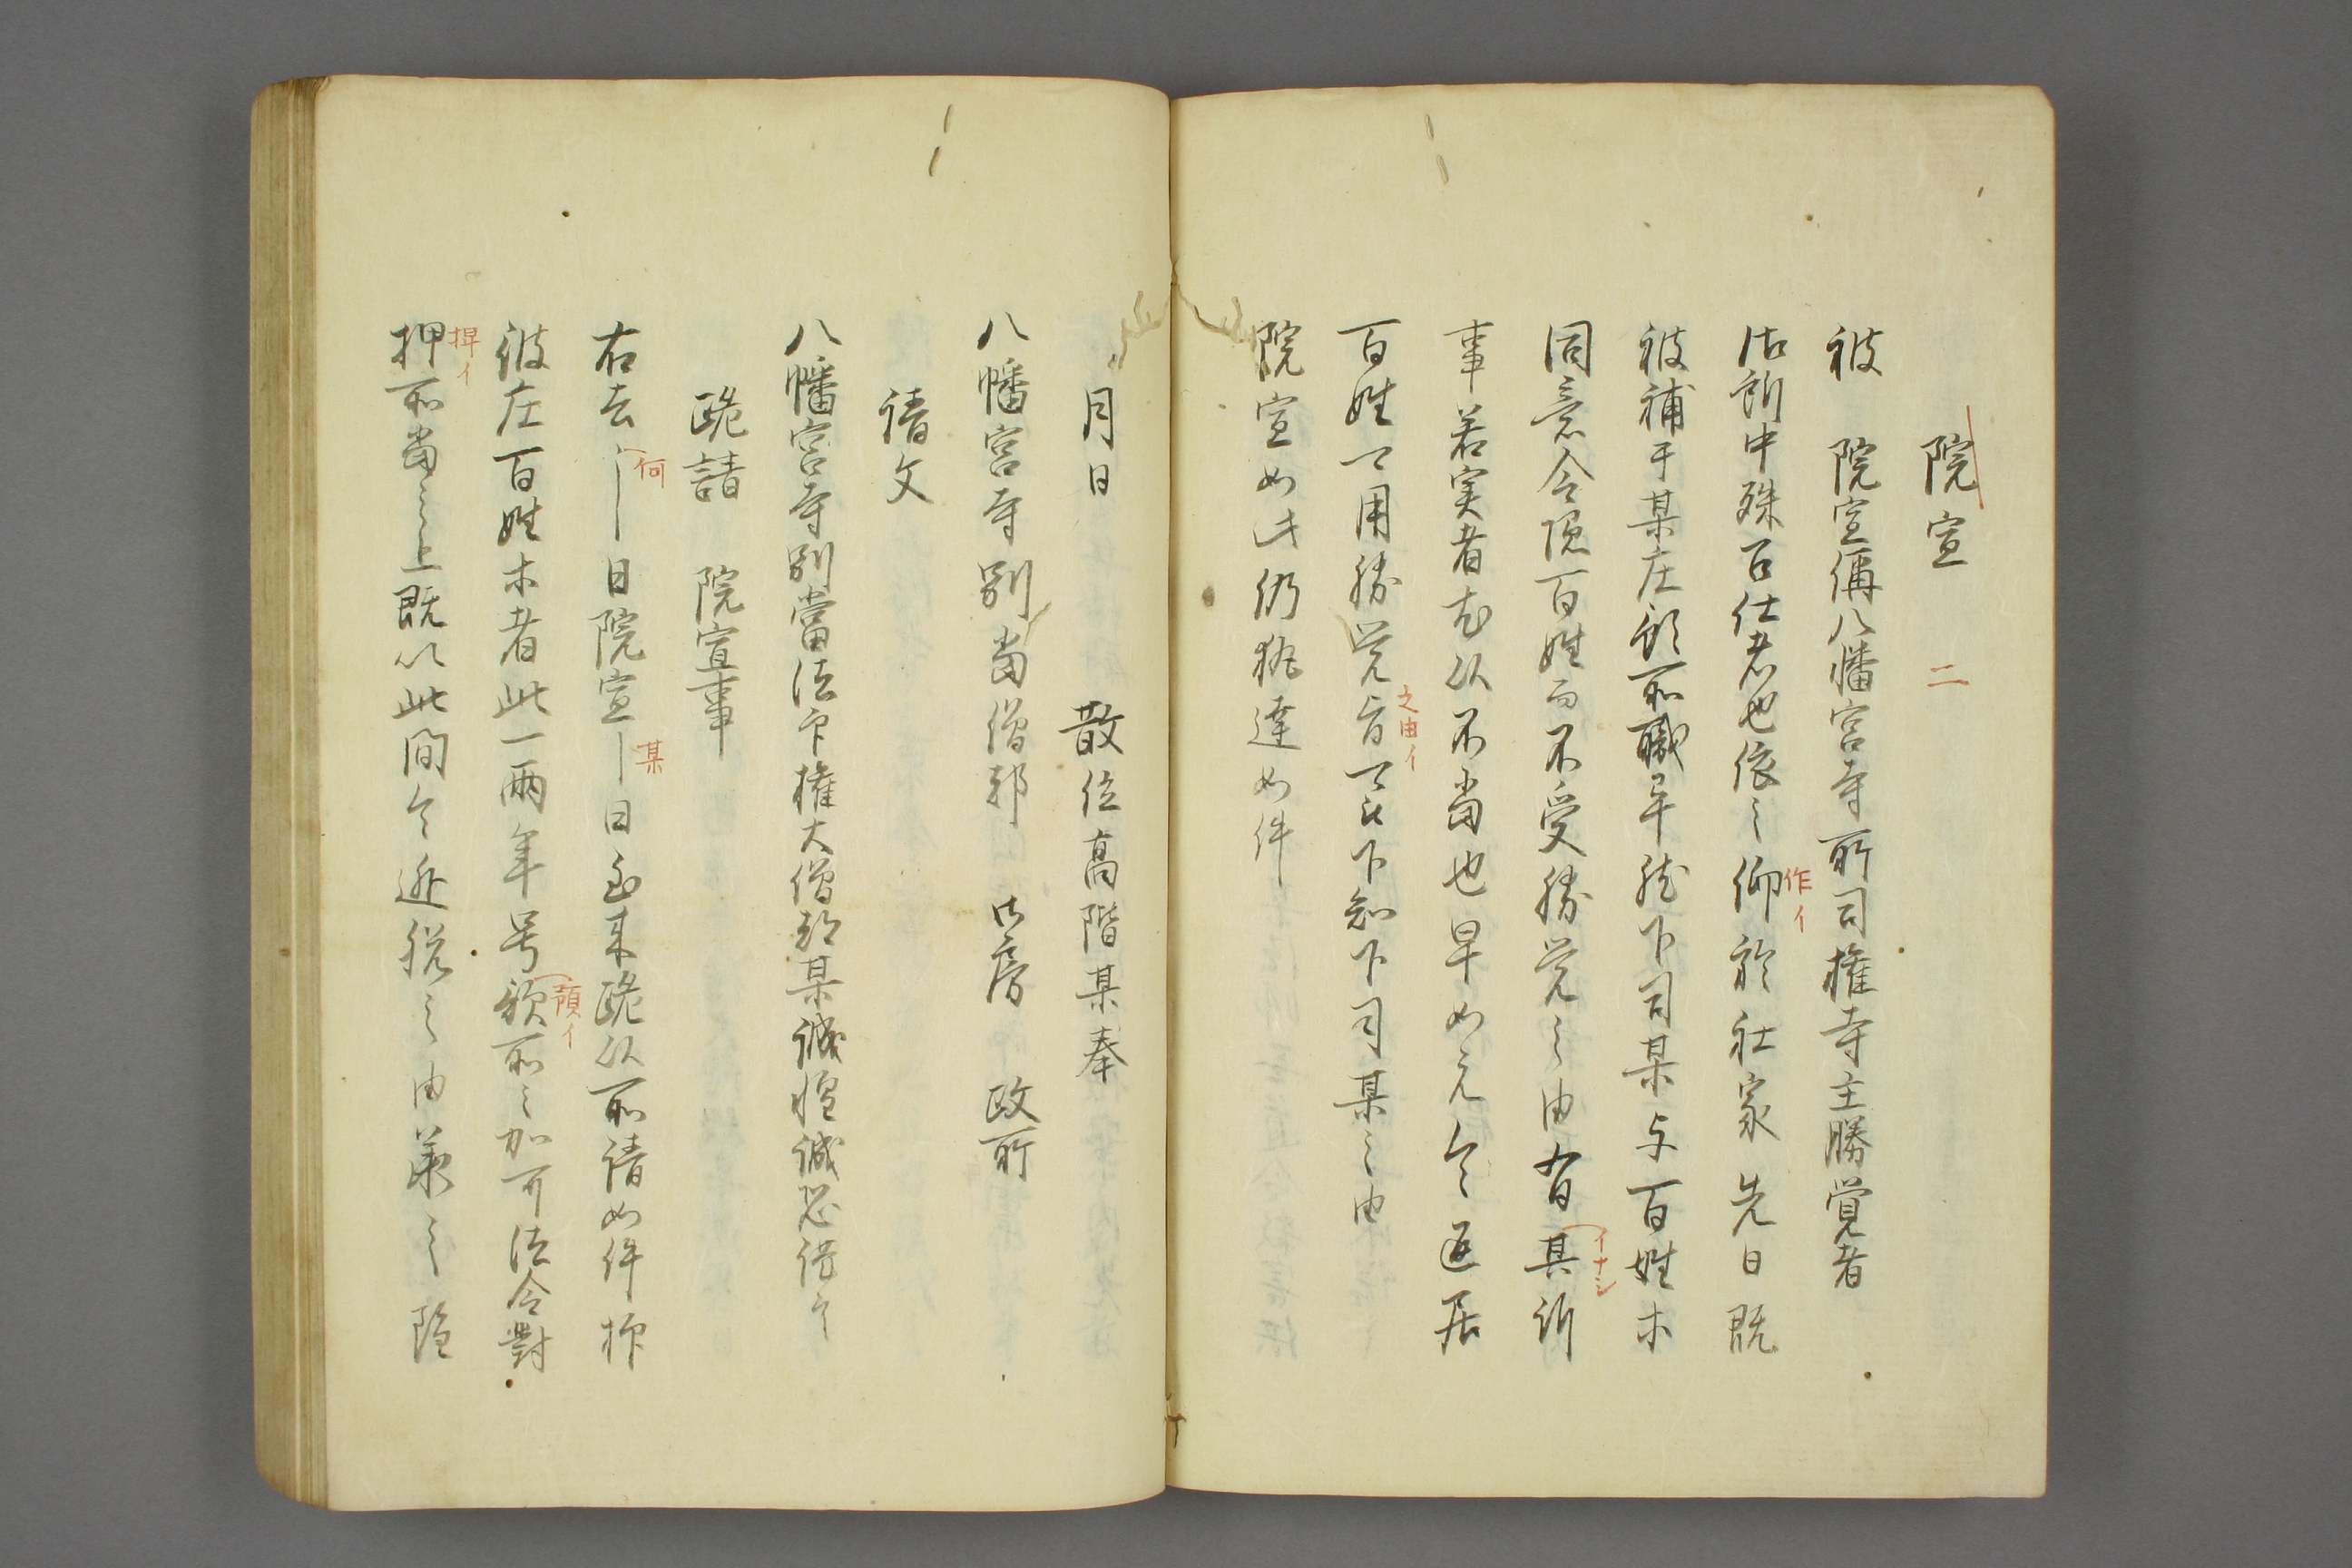 院宣 二
被 院宣偁八幡宮寺所司権寺主勝覚者
沽却中殊召仕者也依之仰於社家先日既
作イ
被補于某庄預所職畢然下司某与百姓木
同意令隠百姓而不受勝覚之由有其訴
イナシ
事若実者尤以不當也早如元令還居
百姓可用勝覚旨可被下知下司某之由
之由イ
院宣如此仍執達如件
月日 散位高階某奉
八幡宮寺別當僧都 御房 政所
請文
八幡宮寺別當法印権大僧都某誠惶誠恐謹言
跪請 院宣事
右去 日院宣 日到来跪以所請如件抑
何
某
彼庄百姓木者此一両年号預所之加可法令對
預イ
押所當之上既以此間令逃脱之由承之隠
捍イ